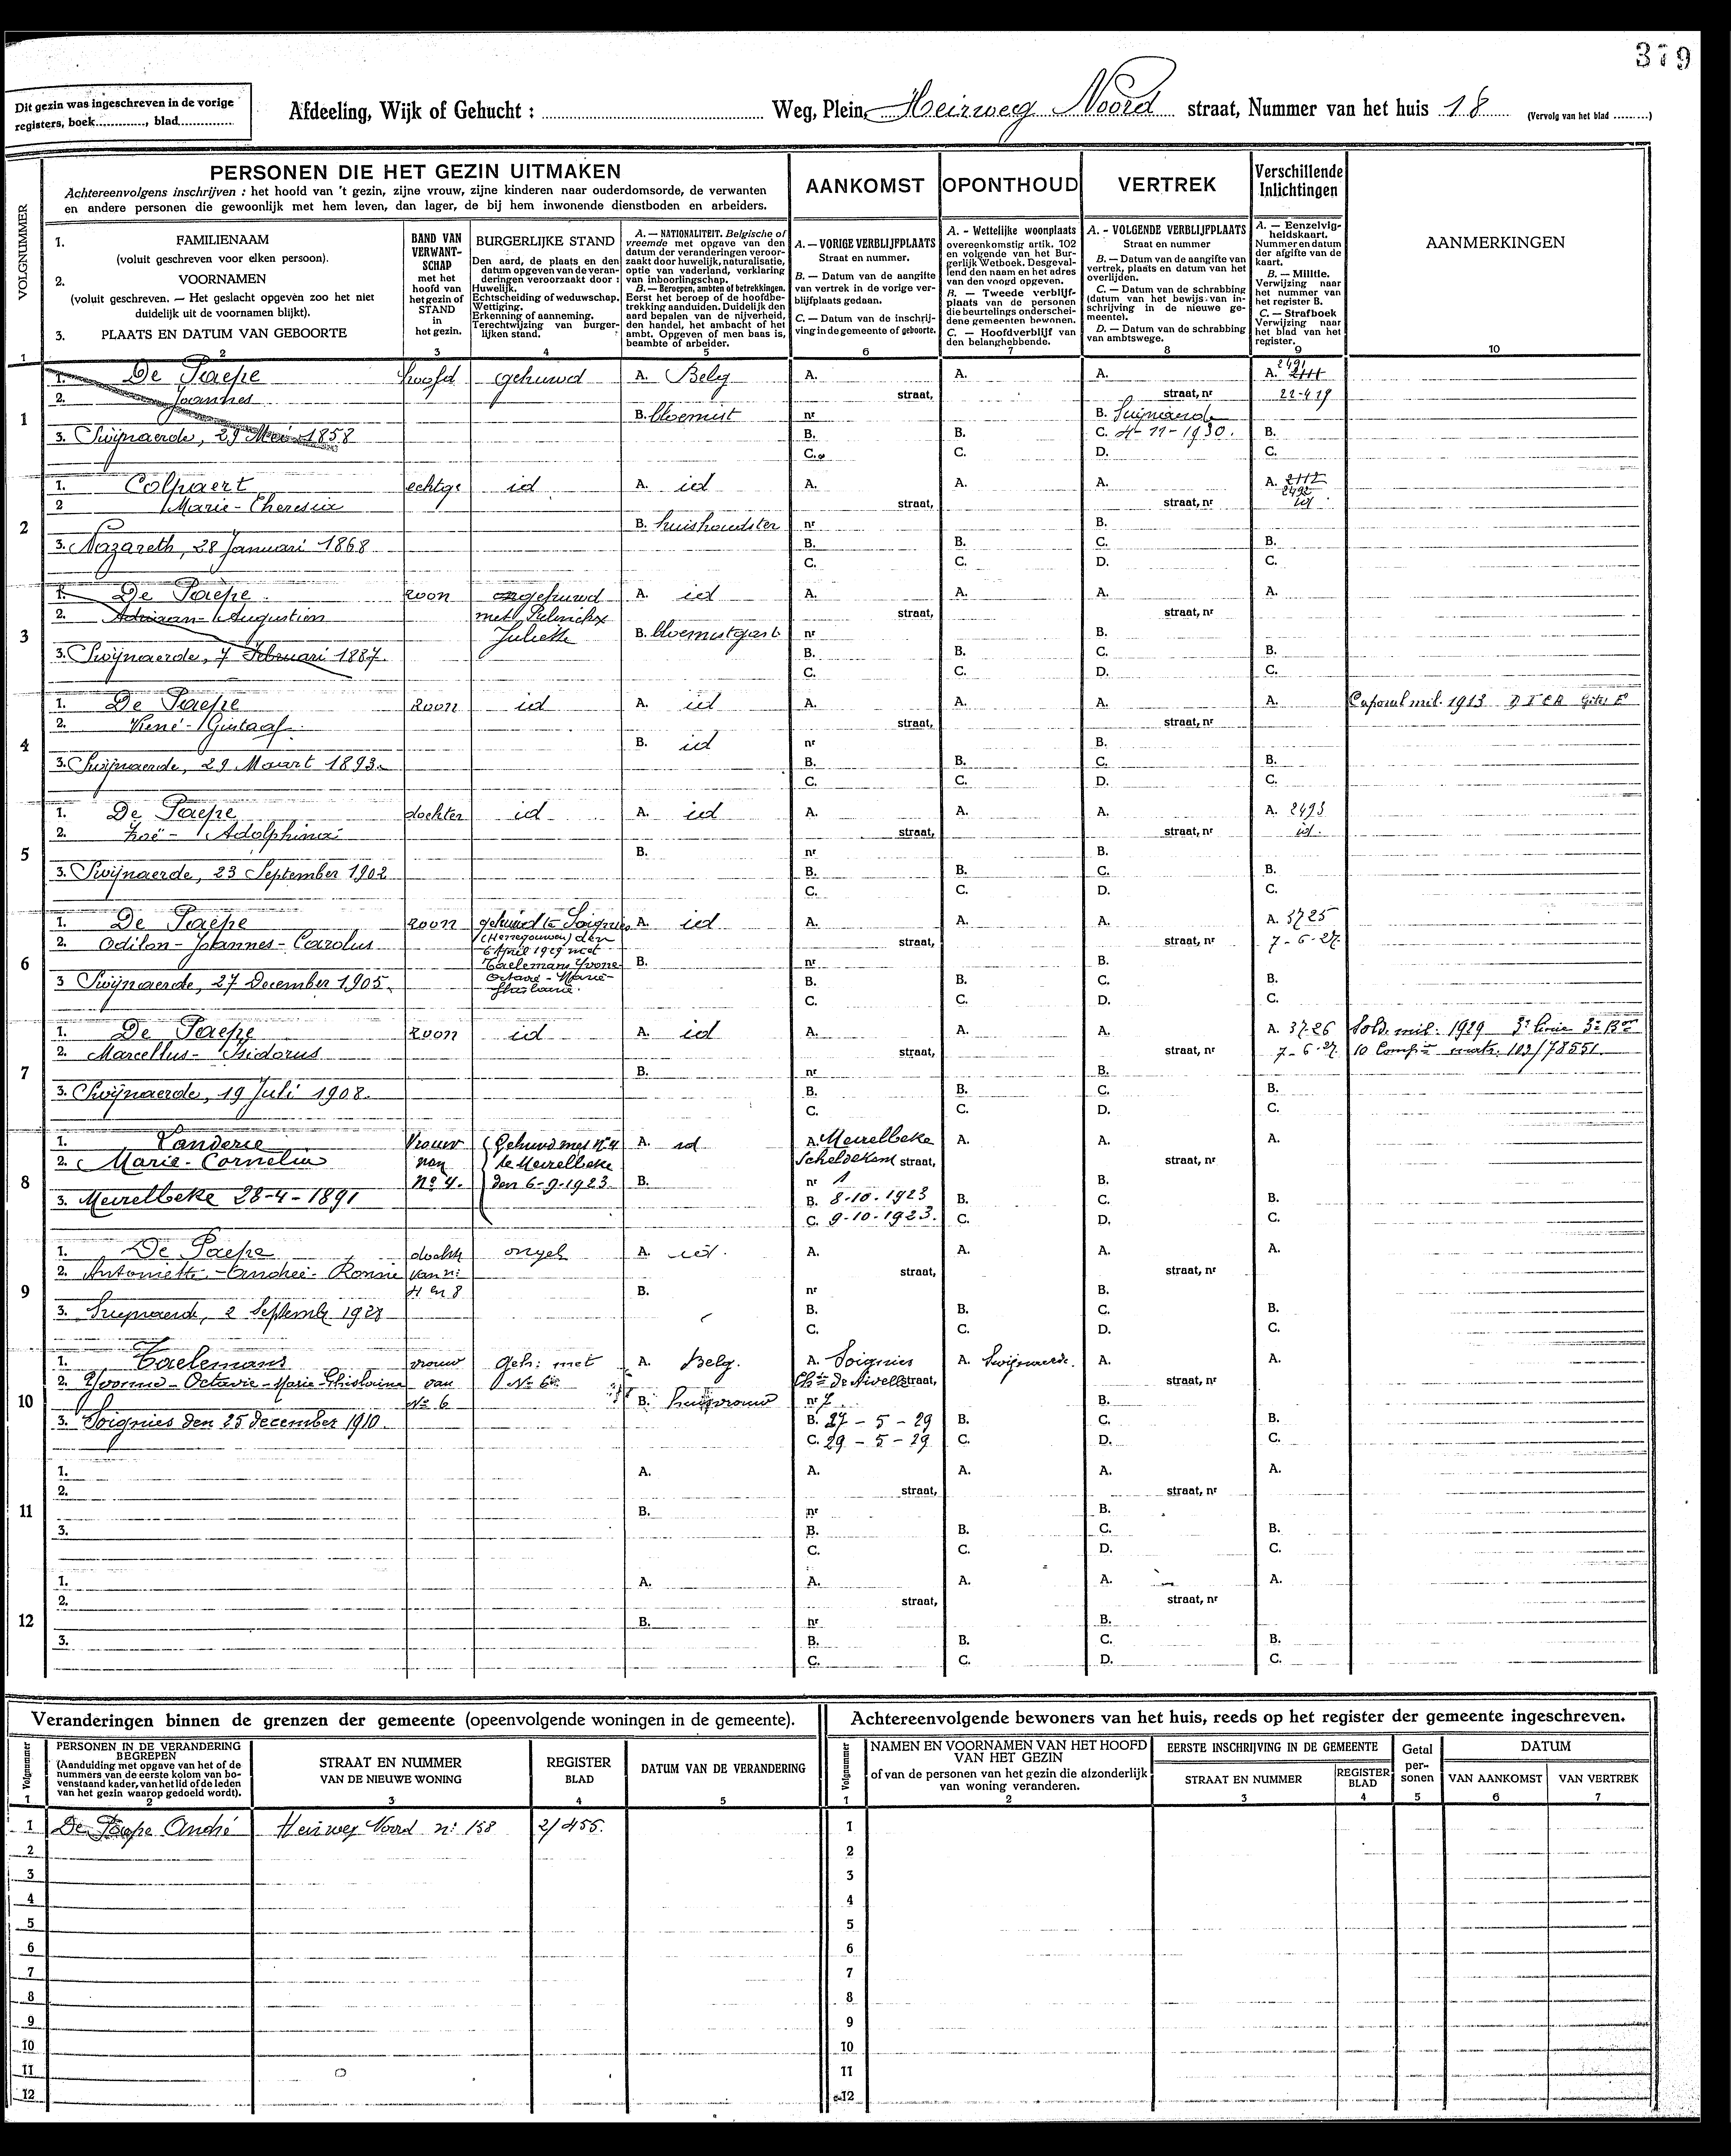 379
Dit gezin was ingeschreven in de vorige
registers, boek............., blad..............
Afdeeling, Wijk of Gehucht : Weg, Plein, Heirweg Noord straat, Nummer van het huis 18 (Vervolg van het blad .........)
VOLGNUMMER
PERSONEN DIE HET GEZIN UITMAKEN
Achtereenvolgens inschrijven : het hoofd van 't gezin, zijne vrouw, zijne kinderen naar ouderdomsorde, de verwanten
en andere personen die gewoonlijk met hem leven, dan lager, de bij hem inwonende dienstboden en arbeiders.
AANKOMST
OPONTHOUD
VERTREK
Verschillende
Inlichtingen
1. FAMILIENAAM
(voluit geschreven voor elken persoon).
2. VOORNAMEN
(voluit geschreven. — Het geslacht opgeven zoo het niet
duidelijk uit de voornamen blijkt).
3. PLAATS EN DATUM VAN GEBOORTE
BAND VAN
VERWANT-
SCHAP
met het
hoofd van
het gezin of
STAND
in
het gezin.
BURGERLIJKE STAND
Den aard, de plaats en den
datum opgeven van de veran-
deringen veroorzaakt door :
Huwelijk.
Echtscheiding of weduwschap.
Wettiging.
Erkenning of aanneming.
Terechtwijzing van burger-
lijken stand.
A. — NATIONALITEIT. Belgische of
vreemde met opgave van den
datum der veranderingen veroor-
zaakt door huwelijk, naturalisatie,
optie van vaderland, verklaring
van inboorlingschap.
B. — Beroepen, ambten of betrekkingen.
Eerst het beroep of de hoofdbe-
trekking aanduiden. Duidelijk den
aard bepalen van de nijverheid,
den handel, het ambacht of het
ambt. Opgeven of men baas is,
beambte of arbeider.
A. — VORIGE VERBLIJFPLAATS
Straat en nummer.
B. — Datum van de aangifte
van vertrek in de vorige ver-
blijfplaats gedaan.
C. — Datum van de inschrij-
ving in de gemeente of geboorte.
A. - Wettelijke woonplaats
overeenkomstig artik. 102
en volgende van het Bur-
gerlijk Wetboek. Desgeval-
lend den naam en het adres
van den voogd opgeven.
B. — Tweede verblijf-
plaats van de personen
die beurtelings onderschei-
dene gemeenten bewonen.
C. — Hoofdverblijf van
den belanghebbende.
A. - VOLGENDE VERBLIJFPLAATS
Straat en nummer
B. — Datum van de aangifte van
vertrek, plaats en datum van het
overlijden.
C. — Datum van de schrabbing
(datum van het bewijs van in-
schrijving in de nieuwe ge-
meente).
D. — Datum van de schrabbing
van ambtswege.
A. — Eenzelvig-
heidskaart.
Nummer en datum
der afgifte van de
kaart.
B. — Militie.
Verwijzing naar
het nummer van
het register B.
C. — Strafboek
Verwijzing naar
het blad van het
register.
AANMERKINGEN
1 2 3 4 5 6 7 8 9 10
1
1. De Paepe hoofd gehuwd A. Belg A. A. A. A. 2491
2. Joannes straat, straat, nr 22-4-19
B. bloemist nr B. Swijnaerde
3. Swijnaerde, 29 Mei 1858 B. B. C. 4-11-1930. B.
C. C. D. C.
2
1. Colpaert echtge id A. id A. A. A. A. 2112
2492
2 Marie-Theresia straat, straat, nr id
B. huishoudster nr B.
3. Nazareth, 28 Januari 1868 B. B. C. B.
C. C. D. C.
3
1. De Paepe zoon ongehuwd A. id A. A. A. A.
2. Adriaan-Augustien met straat, straat, nr
Juliette B. bloemistgast nr B.
3. Swijnaerde, 7 Februari 1887. B. B. C. B.
C. C. D. C.
4
1. De Paepe zoon id A. id A. A. A. A. Caporal mil. 1913
2. René-Gustaaf straat, straat, nr
B. id nr B.
3. Swijnaerde, 29 Maart 1893. B. B. C. B.
C. C. D. C.
5
1. De Paepe dochter id A. id A. A. A. A. 2493
2. Zoë-Adolphina straat, straat, nr id.
B. nr B.
3. Swijnaerde, 23 September 1902 B. B. C. B.
C. C. D. C.
6
1. De Paepe zoon gehuwd te Soignies A. id A. A. A. A. 3725
2. Odilon-Johannes-Carolus (Henegouwen) den straat, straat, nr 7-6-27.
6 April 1929 met
Taelemans Yvone- B. nr B.
3 Swijnaerde, 27 December 1905. Octavie-Marie- B. B. C. B.
Ghislaine. C. C. D. C.
7
1. De Paepe zoon id A. id A. A. A. A. 3726 Sold. mil. 1929 3e linie
2. Marcellus-Isidorus straat, straat, nr 7-6-27. 10 Compie matr. 103/78551.
B. nr B.
3. Swijnaerde, 19 Juli 1908. B. B. C. B.
C. C. D. C.
8
1. Landerie Vrouw Gehuwd met No 4 A. id A. Meirelbeke A. A. A.
2. Marie-Cornelia van te Meirelbeke Scheldekant straat, straat, nr
No 4. den 6-9-1923 B. nr 1 B.
3. Meirelbeke 28-4-1891 B. 8-10-1923 B. C. B.
C. 9-10-1923. C. D. C.
9
1. De Paepe ongeh A. id. A. A. A. A.
2. Antoinette-Andrée- van n: straat, straat, nr
4 en 8 B. nr B.
3. 2 1928 B. B. C. B.
C. C. D. C.
10
1. Taelemans vrouw Geh: met A. Belg. A. Soignies A. Swijnaerde. A. A.
2. Yvonne-Octavie-Marie-Ghislaine van No 6 Chée de Nivelles straat, straat, nr
No 6 B. huisvrouw nr 7 B.
3. Soignies den 25 december 1910 B. 27-5-29 B. C. B.
C. 29-5-29 C. D. C.
11
1. A. A. A. A. A.
2. straat, straat, nr
B. nr B.
3. B. B. C. B.
C. C. D. C.
12
1. A. A. A. A. A.
2. straat, straat, nr
B. nr B.
3. B. B. C. B.
C. C. D. C.
Veranderingen binnen de grenzen der gemeente (opeenvolgende woningen in de gemeente).
Volgnummer
PERSONEN IN DE VERANDERING
BEGREPEN
(Aanduiding met opgave van het of de
nummers van de eerste kolom van bo-
venstaand kader, van het lid of de leden
van het gezin waarop gedoeld wordt).
STRAAT EN NUMMER
VAN DE NIEUWE WONING
REGISTER
BLAD
DATUM VAN DE VERANDERING
1 2 3 4 5
1 De Paepe André Heirweg Noord n: 158 2/455.
2
3
4
5
6
7
8
9
10
11
12
Achtereenvolgende bewoners van het huis, reeds op het register der gemeente ingeschreven.
Volgnummer
NAMEN EN VOORNAMEN VAN HET HOOFD
VAN HET GEZIN
of van de personen van het gezin die afzonderlijk
van woning veranderen.
EERSTE INSCHRIJVING IN DE GEMEENTE
STRAAT EN NUMMER
REGISTER
BLAD
Getal
per-
sonen
DATUM
VAN AANKOMST
VAN VERTREK
1 2 3 4 5 6 7
1
2
3
4
5
6
7
8
9
10
11
12